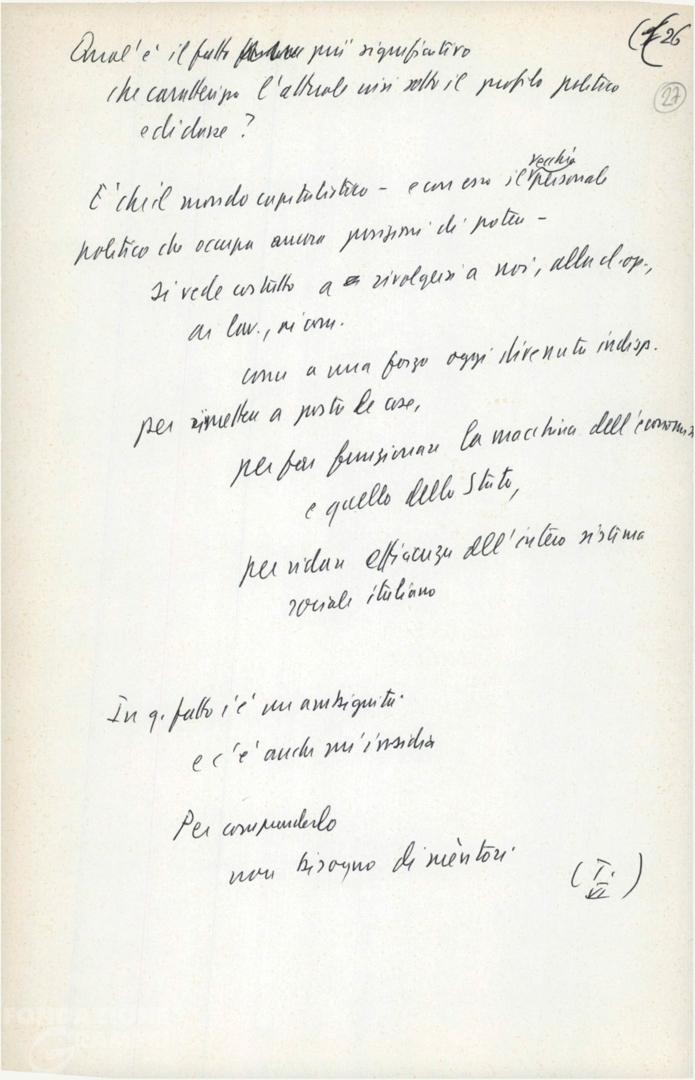 26
27
Qual'è il fatto più significativo
che caratterizza l'attuale crisi sotto il profilo politico
e di classe?
È che il mondo capitalistico – e con esso il vecchio personale
politico che occupa ancora posizioni di potere –
si vede costretto a rivolgersi a noi, alla cl. op.,
ai lav., ai com.
come a una forza oggi divenuta indisp.
per rimettere a posto le cose,
per far funzionare la macchina dell'economia
e quella dello Stato,
per ridare efficienza all'intero sistema
sociale italiano
In q. fatto c'è un'ambiguità
e c'è anche un'insidia
Per comprenderlo
non bisogno di mèntori
(T. VI)